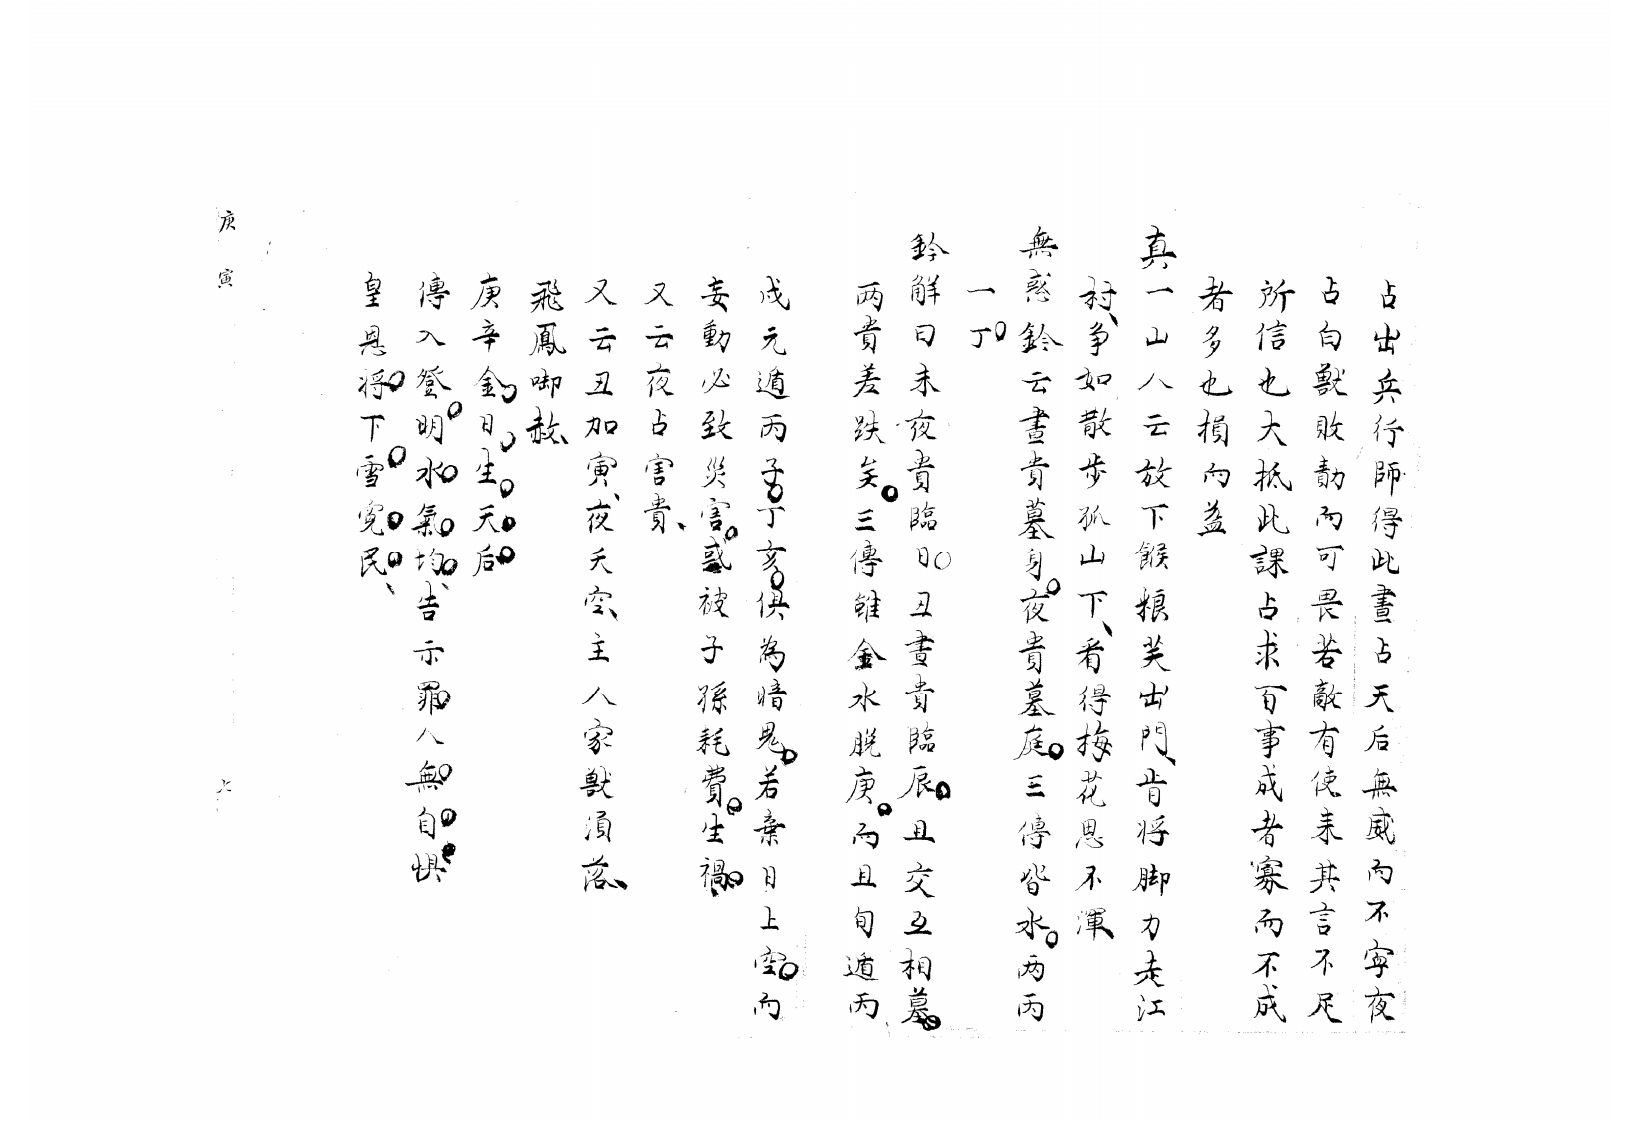 占出兵行師得此晝占天后無威而不寧夜
占白獸敗動而可畏若敵有使来其言不足
所信也大抵此課占求百事成者寡而不成
者多也損而益
真一山人云放下餱粮笑出門肯将脚力走江
村争如散步孤山下看得梅花思不渾
無惑鈐云晝貴墓身夜貴墓庭三傳皆水两丙
一丁
鈐解曰未夜貴臨日丑晝貴臨辰且交互相墓
两貴差跌矣三傳雖金水脫庚而且旬遁丙
戌元遁丙子丁亥俱為暗鬼若棄日上空而
妄動必致災害或被子孫耗費生禍
又云夜占害貴
又云丑加寅夜天空主人家獸須落
飛鳳啣赦
庚辛金日生天后
傳入登明水氣均告示罪人無自惧
皇恩将下雪寃民
庚寅
七